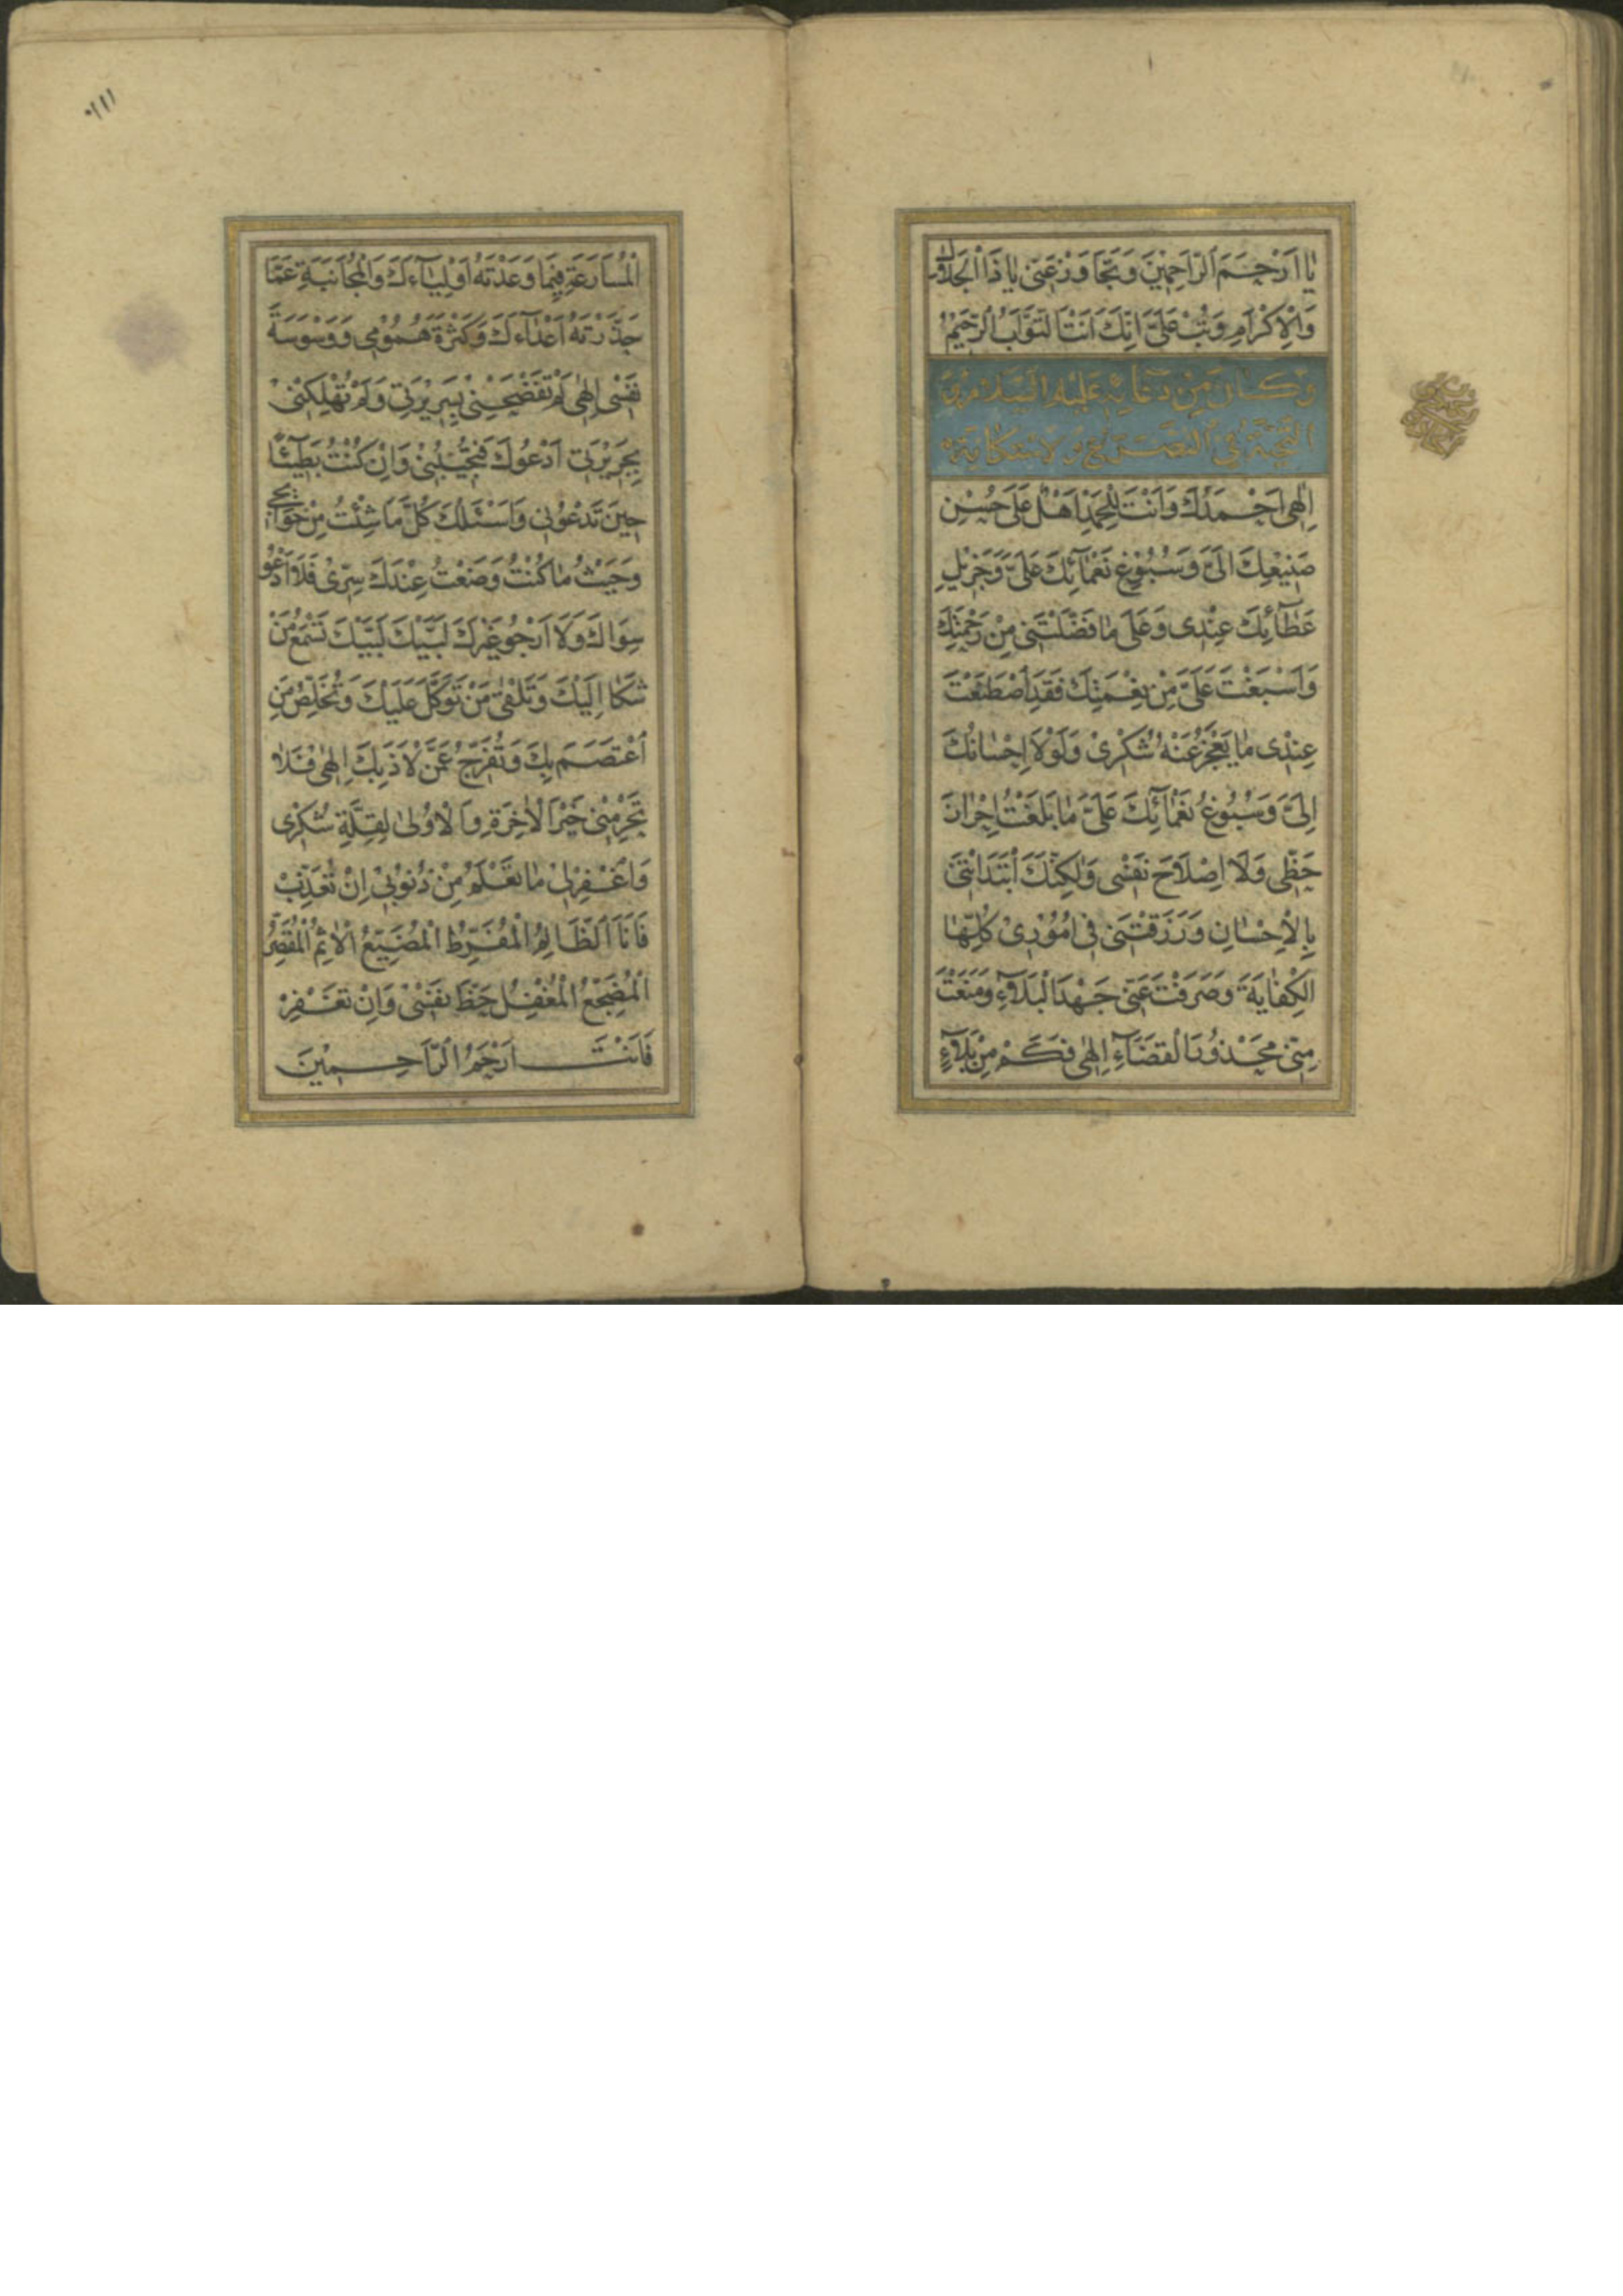 يٰا اَرْحَمَ الرّٰاحِمِيْنَ وَتَجٰاوَزْ عَنّى يٰا ذَا الْجَلاٰلِ
وَالْاِكْرٰامِ وَتُبْ عَلَىَّ اِنَّكَ اَنْتَ التَّوّٰابُ الرَّحيمُ
وَكٰانَ مِنْ دُعٰائِهِ عَلَيْهِ السَّلٰامُ وَ
التَّحِيَّةُ فِى التَّضَرُّعِ وَالْاِسْتِكٰانَةِ
اِلٰهى اَحْمَدُكَ وَاَنْتَ لِلْحَمْدِ اَهْلٌ عَلىٰ حُسْنِ
صَنيْعِكَ اِلَىَّ وَسُبُوْغِ نَعْمٰائِكَ عَلَىَّ وَجَزيْلِ
عَطٰائِكَ عِنْدى وَعَلىٰ مٰا فَضَّلْتَنى مِنْ رَحْمَتِكَ
وَاَسْبَغْتَ عَلَىَّ مِنْ نِعْمَتِكَ فَقَدِ اصْطَنَعْتَ
عِنْدى مٰا يَعْجِزُ عَنْهُ شُكْرىْ وَلَوْلاٰ اِحْسٰانُكَ
اِلَىَّ وَسُبُوغُ نَعْمٰائِكَ عَلَىَّ مٰا بَلَغْتُ اِحْرٰازَ
حَظّى وَلاٰ اِصْلاٰحَ نَفْسى وَلٰكِنَّكَ ابْتَدَاْتَنى
بِالْاِحْسٰانِ وَرَزَقْتَنى فى اُمُوْرىْ كُلِّهَا
الْكِفٰايَةَ وَصَرَفْتَ عَنّى جَهْدَ الْبَلاٰءِ وَمَنَعْتَ
مِنّى مَحْذُوْرَ الْقَضٰاءِ اِلٰهى فَكَمْ مِنْ بَلاٰءٍ
١١١٠
الْمُسٰارَعَةِ فيمٰا وَعَدْتَهُ اَوْلِيٰاءَكَ وَالْمُجٰانَبَةِ عَمّٰا
حَذَّرْتَهُ اَعْدٰاءَكَ وَكَثْرَةَ هُمُوْمى وَوَسْوَسَةَ
نَفْسى اِلٰهى لَمْ تَفْضَحْنىْ بِسَريْرَتى وَلَمْ تُهْلِكْنىْ
بِجَريْرَتى اَدْعُوْكَ فَتُجيْبُنىْ وَاِنْ كُنْتُ بَطيْئًا
حيْنَ تَدْعُوْنى وَاَسْئَلُكَ كُلَّ مٰا شِئْتُ مِنْ حَوٰائِجى
وَحَيْثُ مٰا كُنْتُ وَضَعْتُ عِنْدَكَ سِرّىْ فَلاٰ اَدْعُوْ
سِوٰاكَ وَلاٰ اَرْجُوْ غَيْرَكَ لَبَّيْكَ لَبَّيْكَ تَسْمَعُ مَنْ
شَكٰا اِلَيْكَ وَتَلْقىٰ مَنْ تَوَكَّلَ عَلَيْكَ وَتُخَلِّصُ مَنِ
اعْتَصَمَ بِكَ وَتُفَرِّجُ عَمَّنْ لاٰذَ بِكَ اِلٰهى فَلاٰ
تَحْرِمْنىْ خَيْرَ الْاٰخِرَةِ وَالْاُوْلىٰ لِقِلَّةِ شُكْرىْ
وَاغْفِرْ لىْ مٰا تَعْلَمُ مِنْ ذُنُوْبىْ اِنْ تُعَذِّبْ
فَاَنَا الظّٰالِمُ الْمُفَرِّطُ الْمُضَيِّعُ الْاٰثِمُ الْمُقَصِّرُ
الْمُضَجِّعُ الْمُغْفِلُ حَظَّ نَفْسىْ وَاِنْ تَغْفِرْ
فَاَنْتَ اَرْحَمُ الرّٰاحِميْنَ